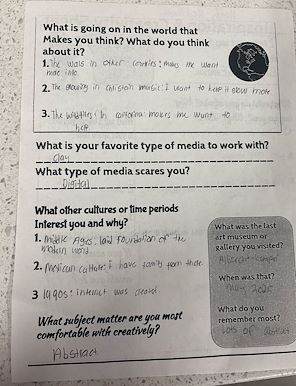 What is going on in the world that
Makes you think? What do you think
about it?
1. The wars in other countries: makes me want
more info
2. The growing in Christain music: I want to help it grow more
3. The wildfires in California: makes me want to
help
What is your favorite type of media to work with?
clay
What type of media scares you?
Digital
What other cultures or time periods
Interest you and why?
1. Middle Ages: laid foundation of the
modern world
2. Mexican culture: I have family from there
3 1990s: internet was created
What subject matter are you most
comfortable with creatively?
Abstract
What was the last
art museum or
gallery you visited?
Abstract
When was that?
May
What do you
remember most?
lots of abstract